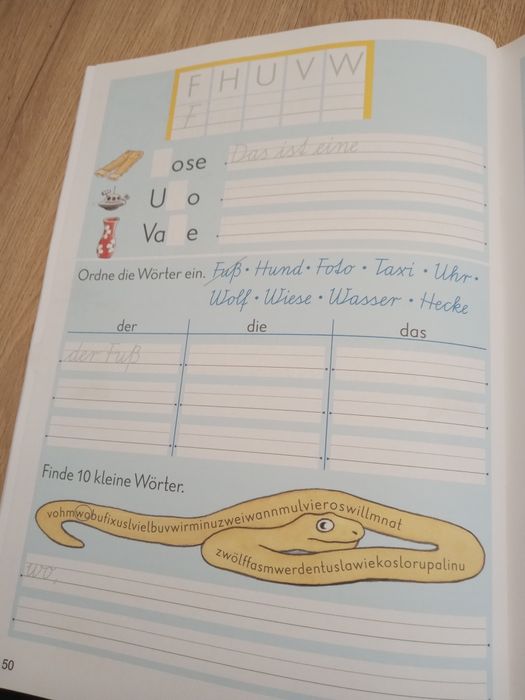 F H U V W
F
ose Das ist eine
U o
Va e
Ordne die Wörter ein. Fuß · Hund · Foto · Taxi · Uhr ·
Wolf · Wiese · Wasser · Hecke
der die das
der Fuß
Finde 10 kleine Wörter.
vohmwobufixuslvielbuvwirminuzweiwannmulvieroswillmnat
zwölffasmwerdentuslawiekoslorupalinu
wo,
50